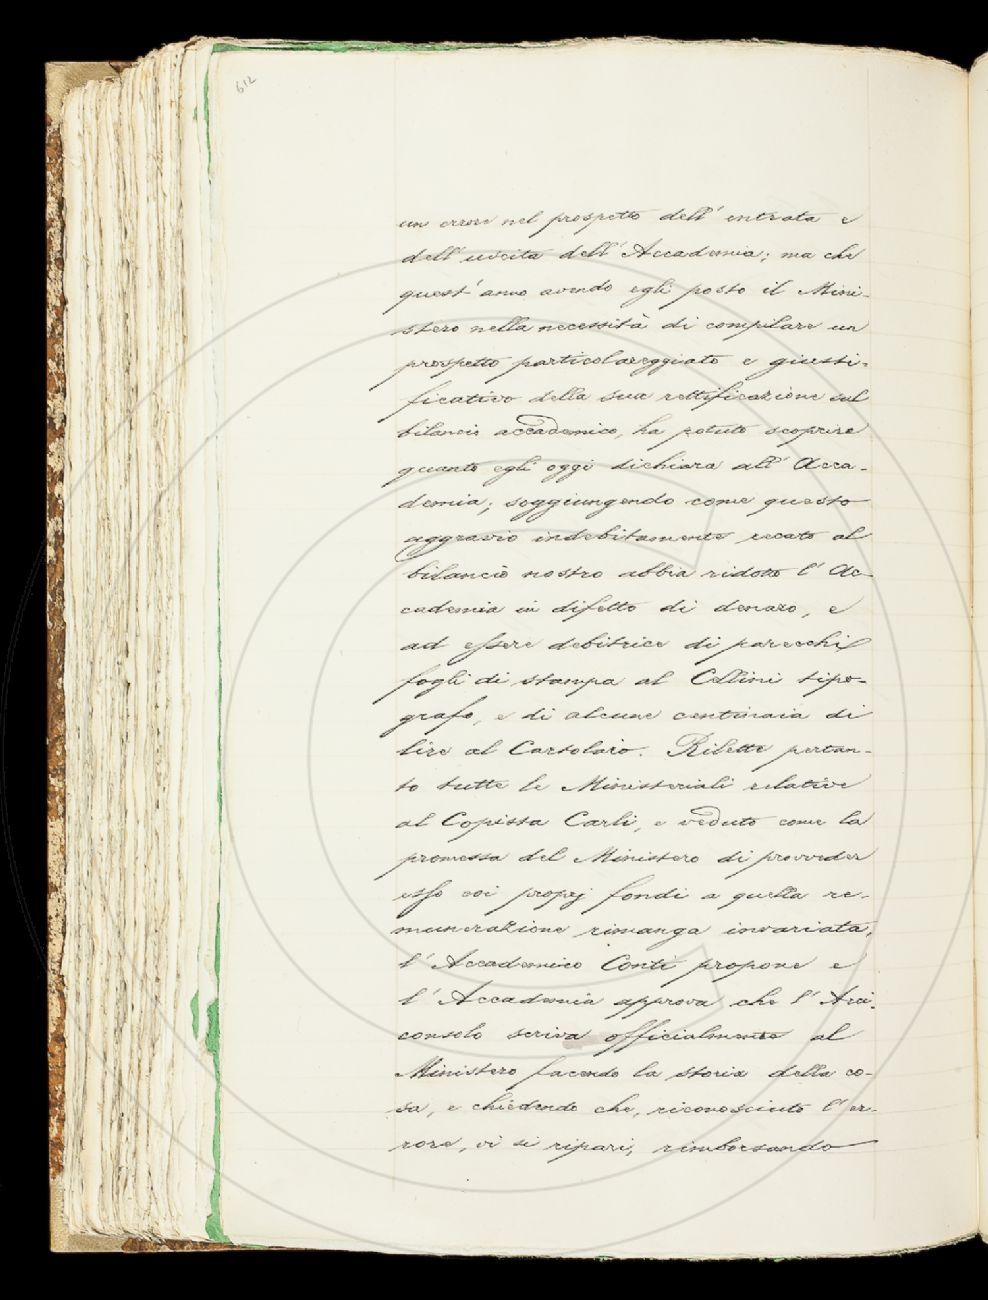 612
un errore nel prospetto dell' entrata e
dell' uscita dell' Accademia; ma che
quest' anno avendo egli posto il Mini-
stero nella necessità di compilare un
prospetto particolareggiato e giusti-
ficativo della sua rettificazione sul
bilancio accademico, ha potuto scoprire
quanto egli oggi dichiara all' Acca-
demia; soggiungendo come questo
aggravio indebitamente recato al
bilancio nostro abbia ridotto l' Ac-
cademia in difetto di denaro, e
ad essere debitrice di parecchi
fogli di stampa al Cellini tipo-
grafo, e di alcune centinaia di
lire al Cartolaio. Rilette pertan-
to tutte le Ministeriali relative
al Copista Carli, e veduto come la
promessa del Ministero di provveder
esso coi proprj fondi a quella re-
munerazione rimanga invariata,
l' Accademico Conti propone e
l' Accademia approva che l' Arci-
consolo scriva officialmente al
Ministero facendo la storia della co-
sa, e chiedendo che, riconosciuto l' er-
rore, vi si ripari, rimborsando